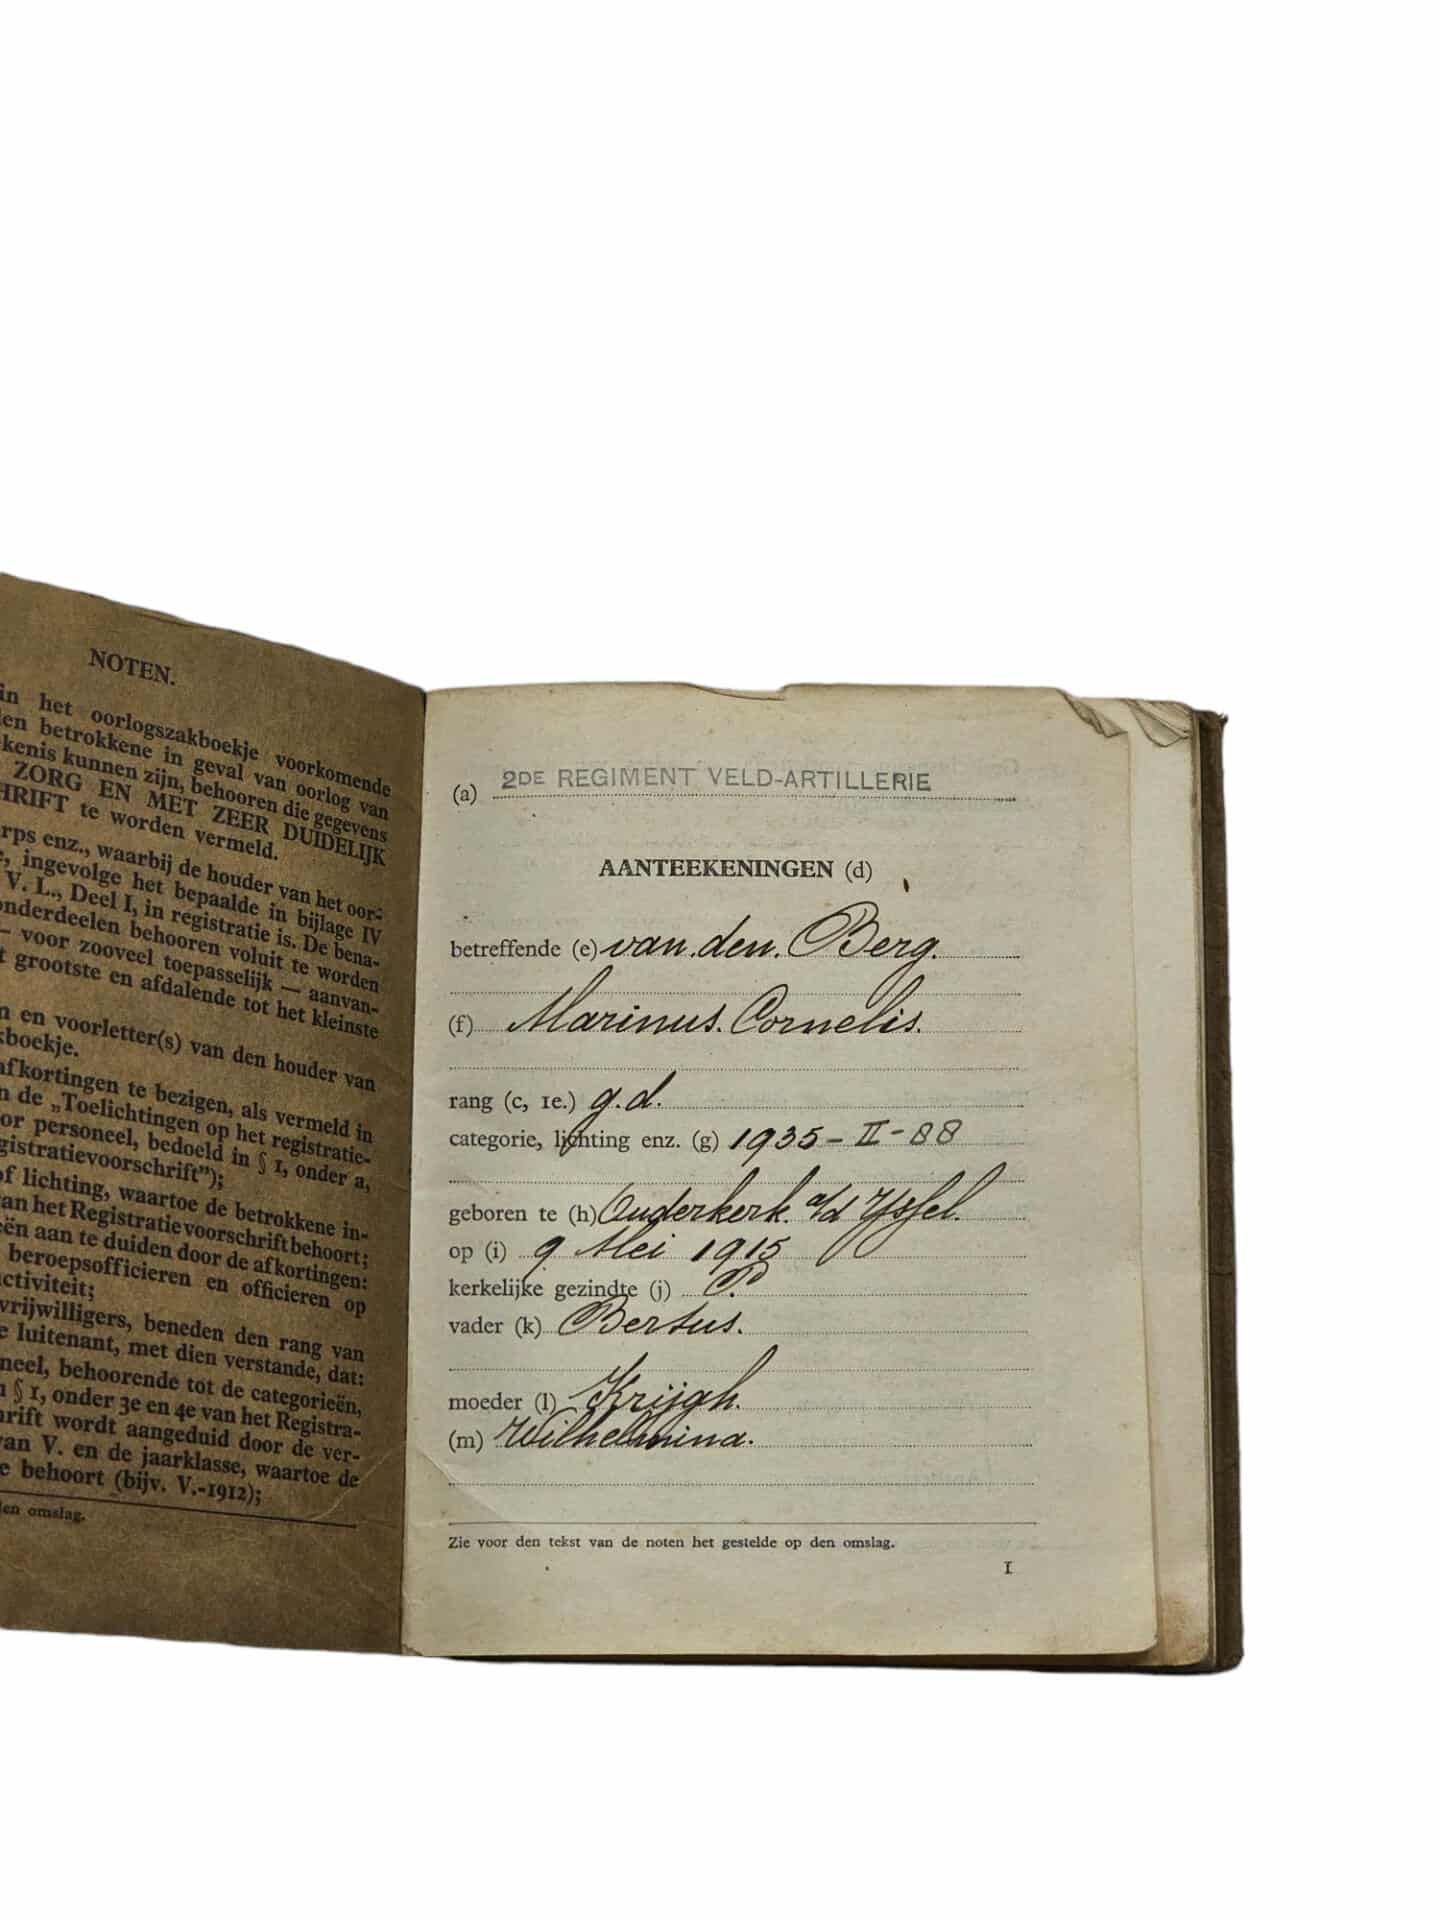 NOTEN.
in het oorlogszakboekje voorkomende
den betrokkene in geval van oorlog van
kenis kunnen zijn, behooren die gegevens
ZORG EN MET ZEER DUIDELIJK
HRIFT te worden vermeld.
rps enz., waarbij de houder van het oor-
, ingevolge het bepaalde in bijlage IV
V. L., Deel I, in registratie is. De bena-
onderdeelen behooren voluit te worden
— voor zooveel toepasselijk — aanvan-
t grootste en afdalende tot het kleinste
n en voorletter(s) van den houder van
kboekje.
afkortingen te bezigen, als vermeld in
n de „Toelichtingen op het registratie-
or personeel, bedoeld in § 1, onder a,
gistratievoorschrift”);
of lichting, waartoe de betrokkene in-
van het Registratievoorschrift behoort;
eën aan te duiden door de afkortingen:
beroepsofficieren en officieren op
activiteit;
vrijwilligers, beneden den rang van
e luitenant, met dien verstande, dat:
neel, behoorende tot de categorieën,
n § 1, onder 3e en 4e van het Registra-
hrift wordt aangeduid door de ver-
van V. en de jaarklasse, waartoe de
e behoort (bijv. V.-1912);
den omslag.
(a) 2DE REGIMENT VELD-ARTILLERIE
AANTEEKENINGEN (d)
betreffende (e) van den Berg.
(f) Marinus. Cornelis.
rang (c, 1e.) g.d.
categorie, lichting enz. (g) 1935-II-88
geboren te (h) Ouderkerk a/d IJssel.
op (i) 9 Mei 1915
kerkelijke gezindte (j) P.
vader (k) Bertus.
moeder (l) Krijgh.
(m) Wilhelmina.
Zie voor den tekst van de noten het gestelde op den omslag.
1